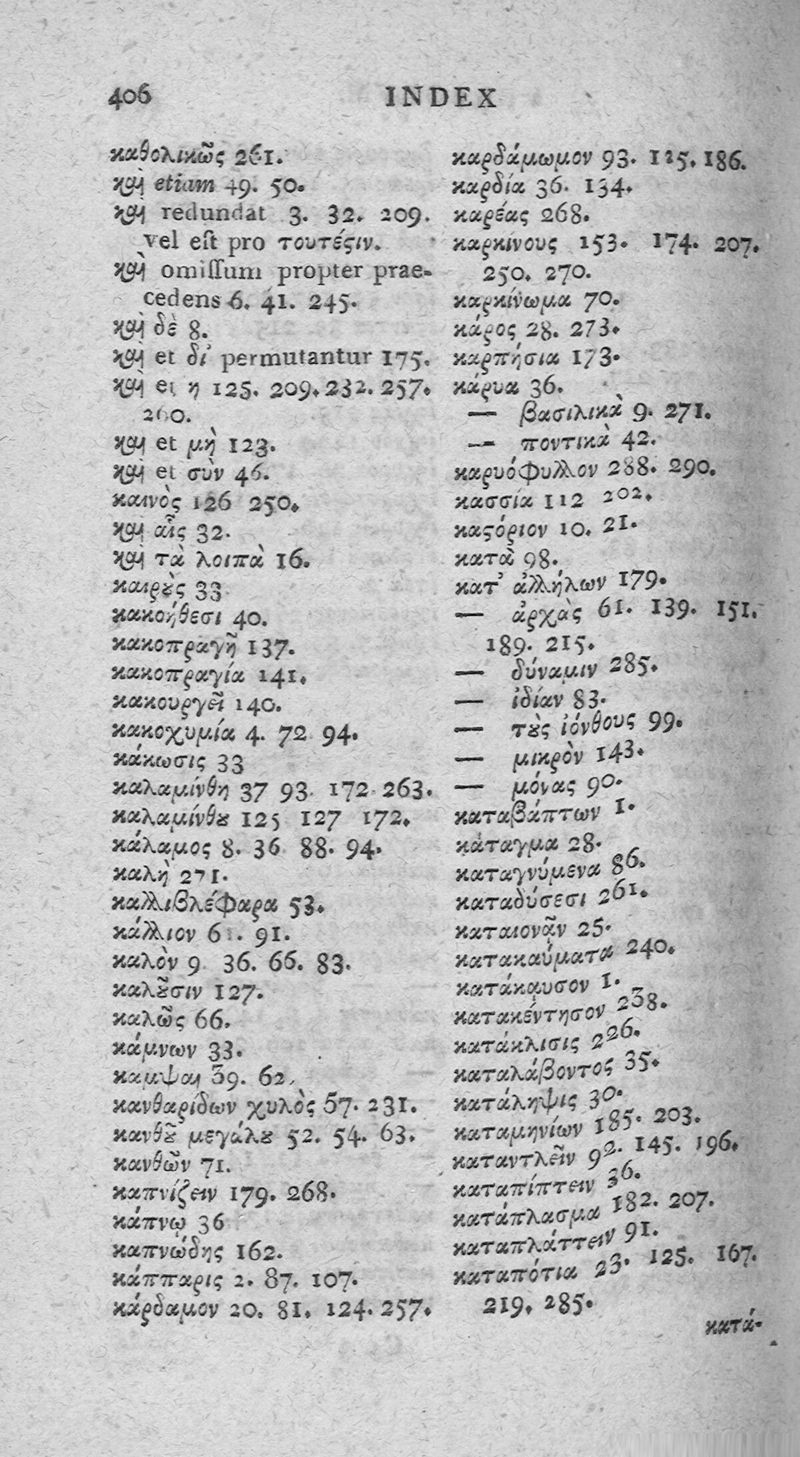 406 INDEX
καθολικῶς 261.
καὶ etiam 49. 50.
καὶ redundat 3. 32. 209.
vel eſt pro τουτέϛιν.
καὶ omiſſum propter prae-
cedens 6. 41. 245.
καὶ δὲ 8.
καὶ et δι' permutantur 175.
καὶ et η 125. 209. 232. 257.
260.
καὶ et μὴ 123.
καὶ et σὺν 46.
καινὸς 126 250.
καὶ αἷς 32.
καὶ τὰ λοιπὰ 16.
καιρȣ̀ς 33
κακοήθεσι 40.
κακοπραγῆ 137.
κακοπραγία 141.
κακουργεῖ 140.
κακοχυμία 4. 72 94.
κάκωσις 33
καλαμίνθη 37 93. 172 263.
καλαμίνθȣ 125 127 172.
κάλαμος 8. 36 88. 94.
καλὴ 271.
καλλιβλέφαρα 53.
κάλλιον 61. 91.
καλὸν 9 36. 66. 83.
καλȣ͂σιν 127.
καλῶς 66.
κάμνων 33.
καμψαι 39. 62.
κανθαρίδων χυλὸς 57. 231.
κανθȣ͂ μεγάλȣ 52. 54. 63.
κανθῶν 71.
καπνίζειν 179. 268.
κάπνῳ 36
καπνώδης 162.
κάππαρις 2. 87. 107.
κάρδαμον 20. 81. 124. 257.
καρδάμωμον 93. 125. 186.
καρδία 36. 134.
καρέας 268.
καρκίνους 153. 174. 207.
250. 270.
καρκίνωμα 70.
κάρος 28. 273.
καρπήσια 173.
κάρυα 36.
— βασιλικὰ 9. 271.
— ποντικὰ 42.
καρυόφυλλον 288. 290.
κασσία 112 202.
καϛόριον 10. 21.
κατὰ 98.
κατ' ἀλλήλων 179.
— ἀρχὰς 61. 139. 151.
189. 215.
— δύναμιν 285.
— ἰδίαν 83.
— τȣ̀ς ἰόνθους 99.
— μικρὸν 143.
— μόνας 90.
καταβάπτων 1.
κάταγμα 28.
καταγνύμενα 86.
καταδύσεσι 261.
καταιονᾶν 25.
κατακαύματα 240.
κατάκαυσον 1.
κατακέντησον 238.
κατάκλισις 226.
καταλάβοντος 35.
κατάληψις 30.
καταμηνίων 185. 203.
καταντλεῖν 92. 145. 196.
καταπίπτειν 36.
κατάπλασμα 182. 207.
καταπλάττειν 91.
καταπότια 23. 125. 167.
219. 285.
κατά-